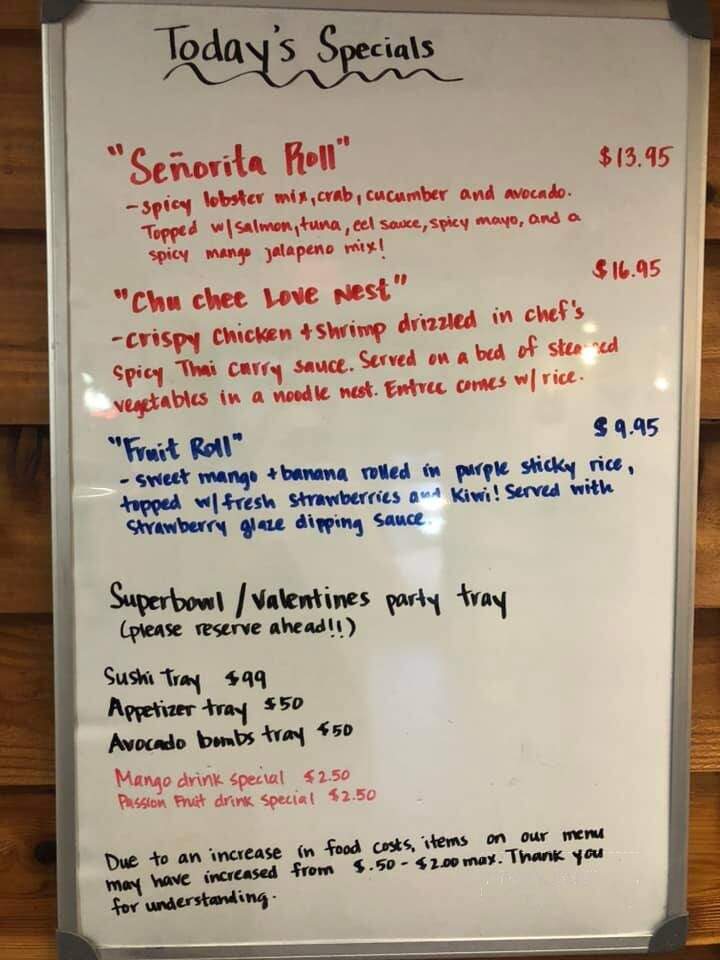 Today's Specials
"Señorita Roll"
$13.95
-spicy lobster mix, crab, cucumber and avocado.
Topped w/salmon, tuna, eel sauce, spicy mayo, and a
spicy mango jalapeno mix!
$16.95
"Chu chee Love Nest"
-crispy chicken + shrimp drizzled in chef's
Spicy Thai curry sauce. Served on a bed of steamed
vegetables in a noodle nest. Entree comes w/ rice.
$9.95
"Fruit Roll"
- sweet mango + banana rolled in purple sticky rice,
topped w/ fresh strawberries and Kiwi! Served with
Strawberry glaze dipping sauce.
Superbowl / Valentines party tray
(please reserve ahead!!)
Sushi Tray $99
Appetizer tray $50
Avocado bombs tray $50
Mango drink special $2.50
Passion Fruit drink special $2.50
Due to an increase in food costs, items on our menu
may have increased from $.50 - $2.00 max. Thank you
for understanding.